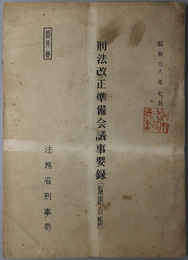 昭和三八年七月
刑法改正準備会議事要録
部外秘
法務省刑事局